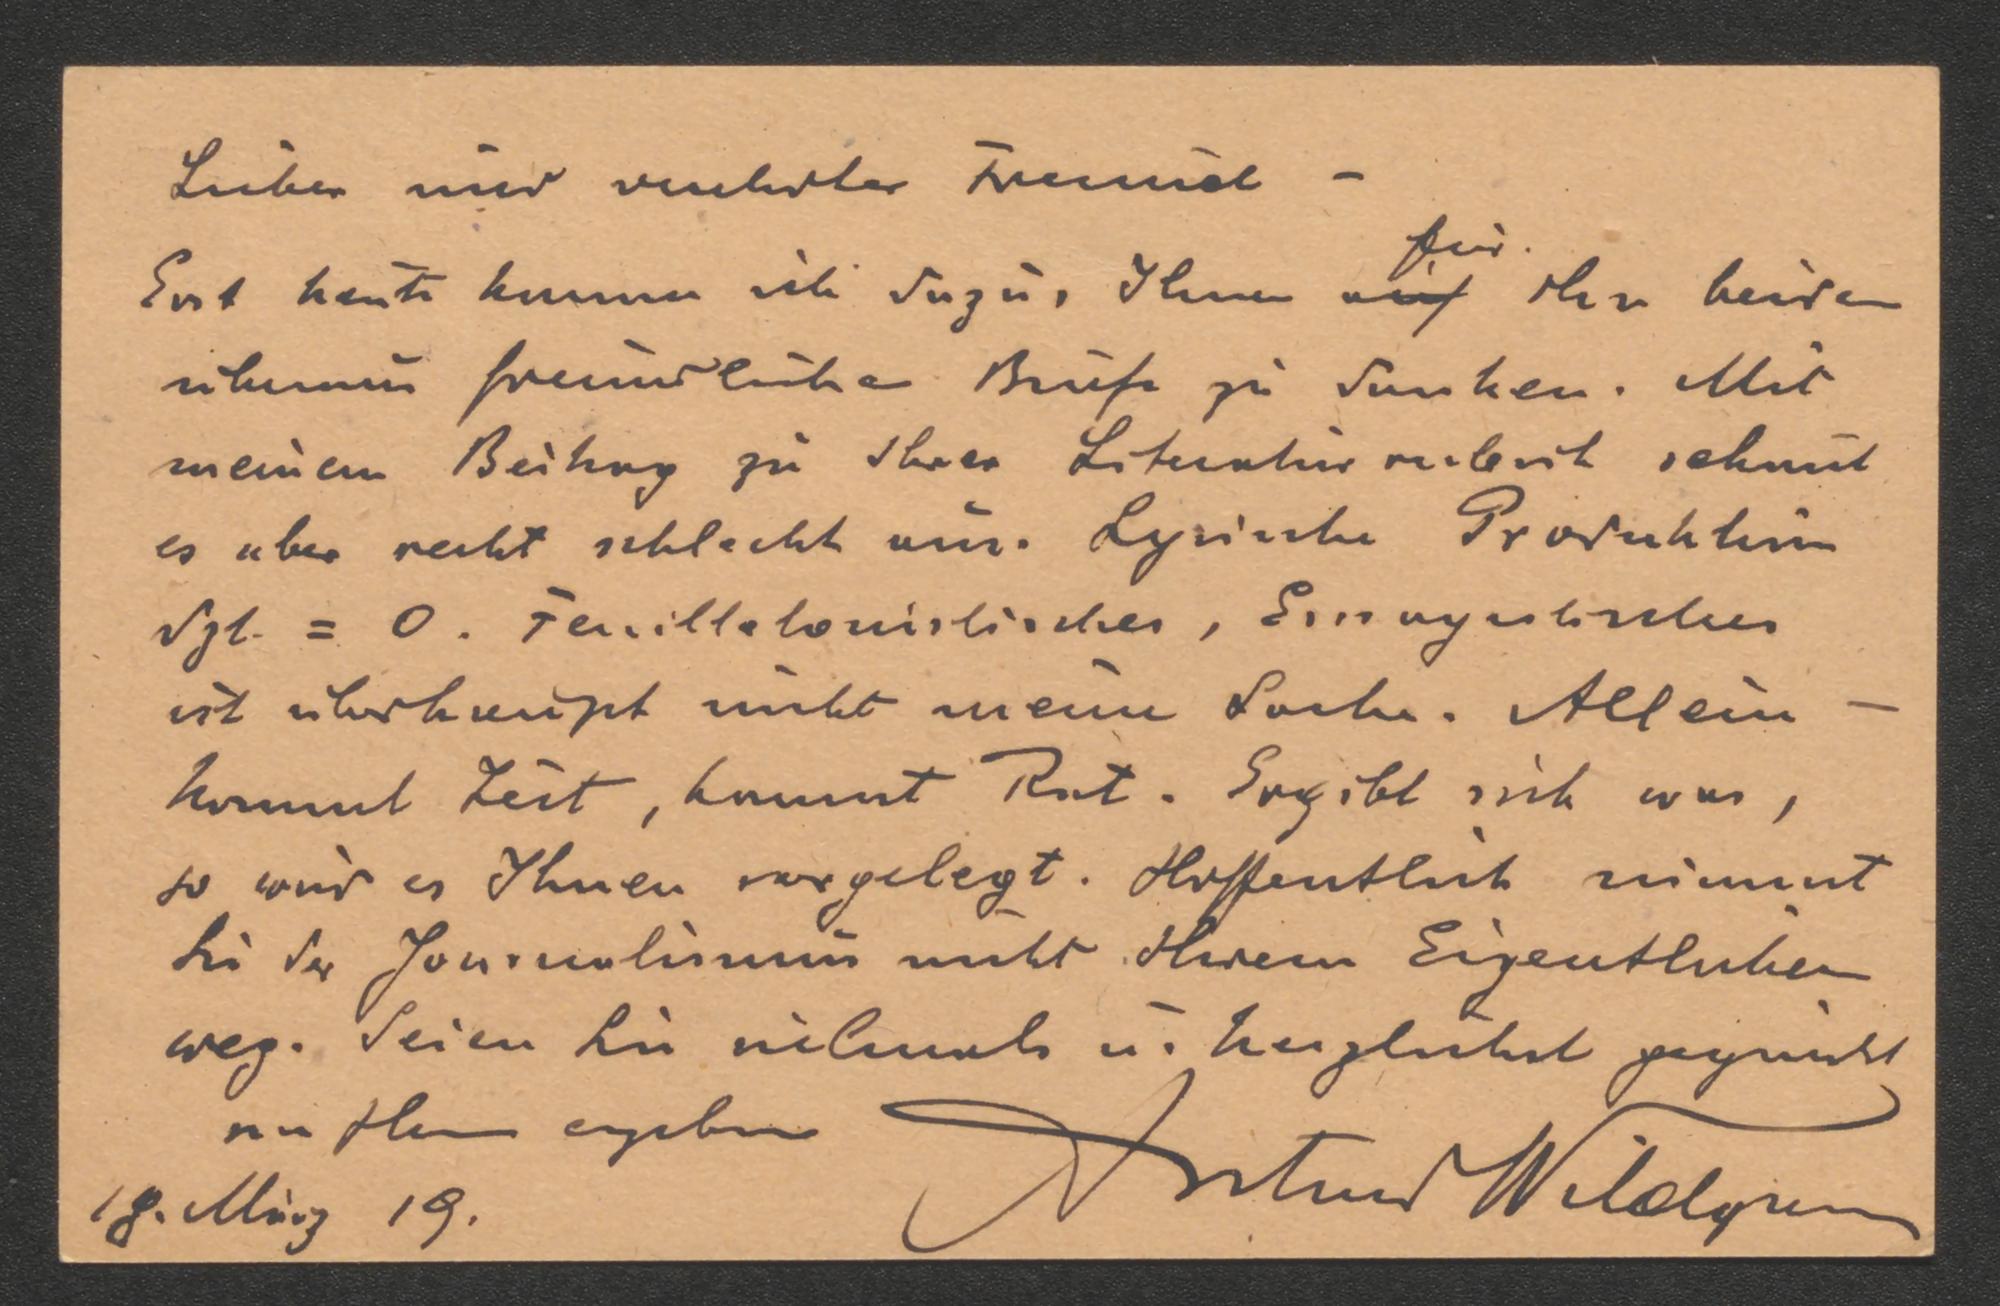 Lieber und verehrter Freund –
Erst heute komme ich dazu, Ihnen auf für Ihre beiden
überaus freundlichen Briefe zu danken. Mit
meinem Beitrag zu Ihrer Literaturrubrik schaut
es aber recht schlecht aus. Lyrische Produktion
dzt. = 0. Feuilletonistisches, Essayistisches
ist überhaupt nicht meine Sache. Allein –
kommt Zeit, kommt Rat. Ergibt sich was,
so wird es Ihnen vorgelegt. Hoffentlich nimmt
Sie der Journalismus nicht Ihrem Eigentlichen
weg. Seien Sie vielmals u. herzlichst gegrüßt
von Ihrem ergebenen Anton Wildgans
18. März 19.